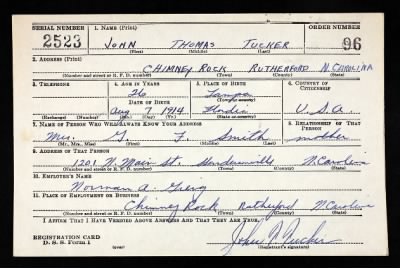 SERIAL NUMBER 1. NAME (Print) ORDER NUMBER
2523 JOHN THOMAS TUCKER 96
(First) (Middle) (Last)
2. ADDRESS (Print)
CHIMNEY ROCK RUTHERFORD N.CAROLINA
(Number and street or R. F. D. number) (Town) (County) (State)
3. TELEPHONE 4. AGE IN YEARS 5. PLACE OF BIRTH 6. COUNTRY OF CITIZENSHIP
26 Tampa
DATE OF BIRTH (Town or county)
Aug 7 1914 Florida U.S.A.
(Exchange) (Number) (Mo.) (Day) (Yr.) (State or country)
7. NAME OF PERSON WHO WILL ALWAYS KNOW YOUR ADDRESS 8. RELATIONSHIP OF THAT PERSON
Mrs. G. F. Smith mother
(Mr., Mrs., Miss) (First) (Middle) (Last)
9. ADDRESS OF THAT PERSON
1201 N. Main St. Hendersonville N Carolina
(Number and street or R. F. D. number) (Town) (County) (State)
10. EMPLOYER'S NAME
Norman A. Greig
11. PLACE OF EMPLOYMENT OR BUSINESS
Chimney Rock Rutherford N Carolina
(Number and street or R. F. D. number) (Town) (County) (State)
I AFFIRM THAT I HAVE VERIFIED ABOVE ANSWERS AND THAT THEY ARE TRUE.
REGISTRATION CARD
D. S. S. Form 1 (over) John T Tucker
(Registrant's signature)